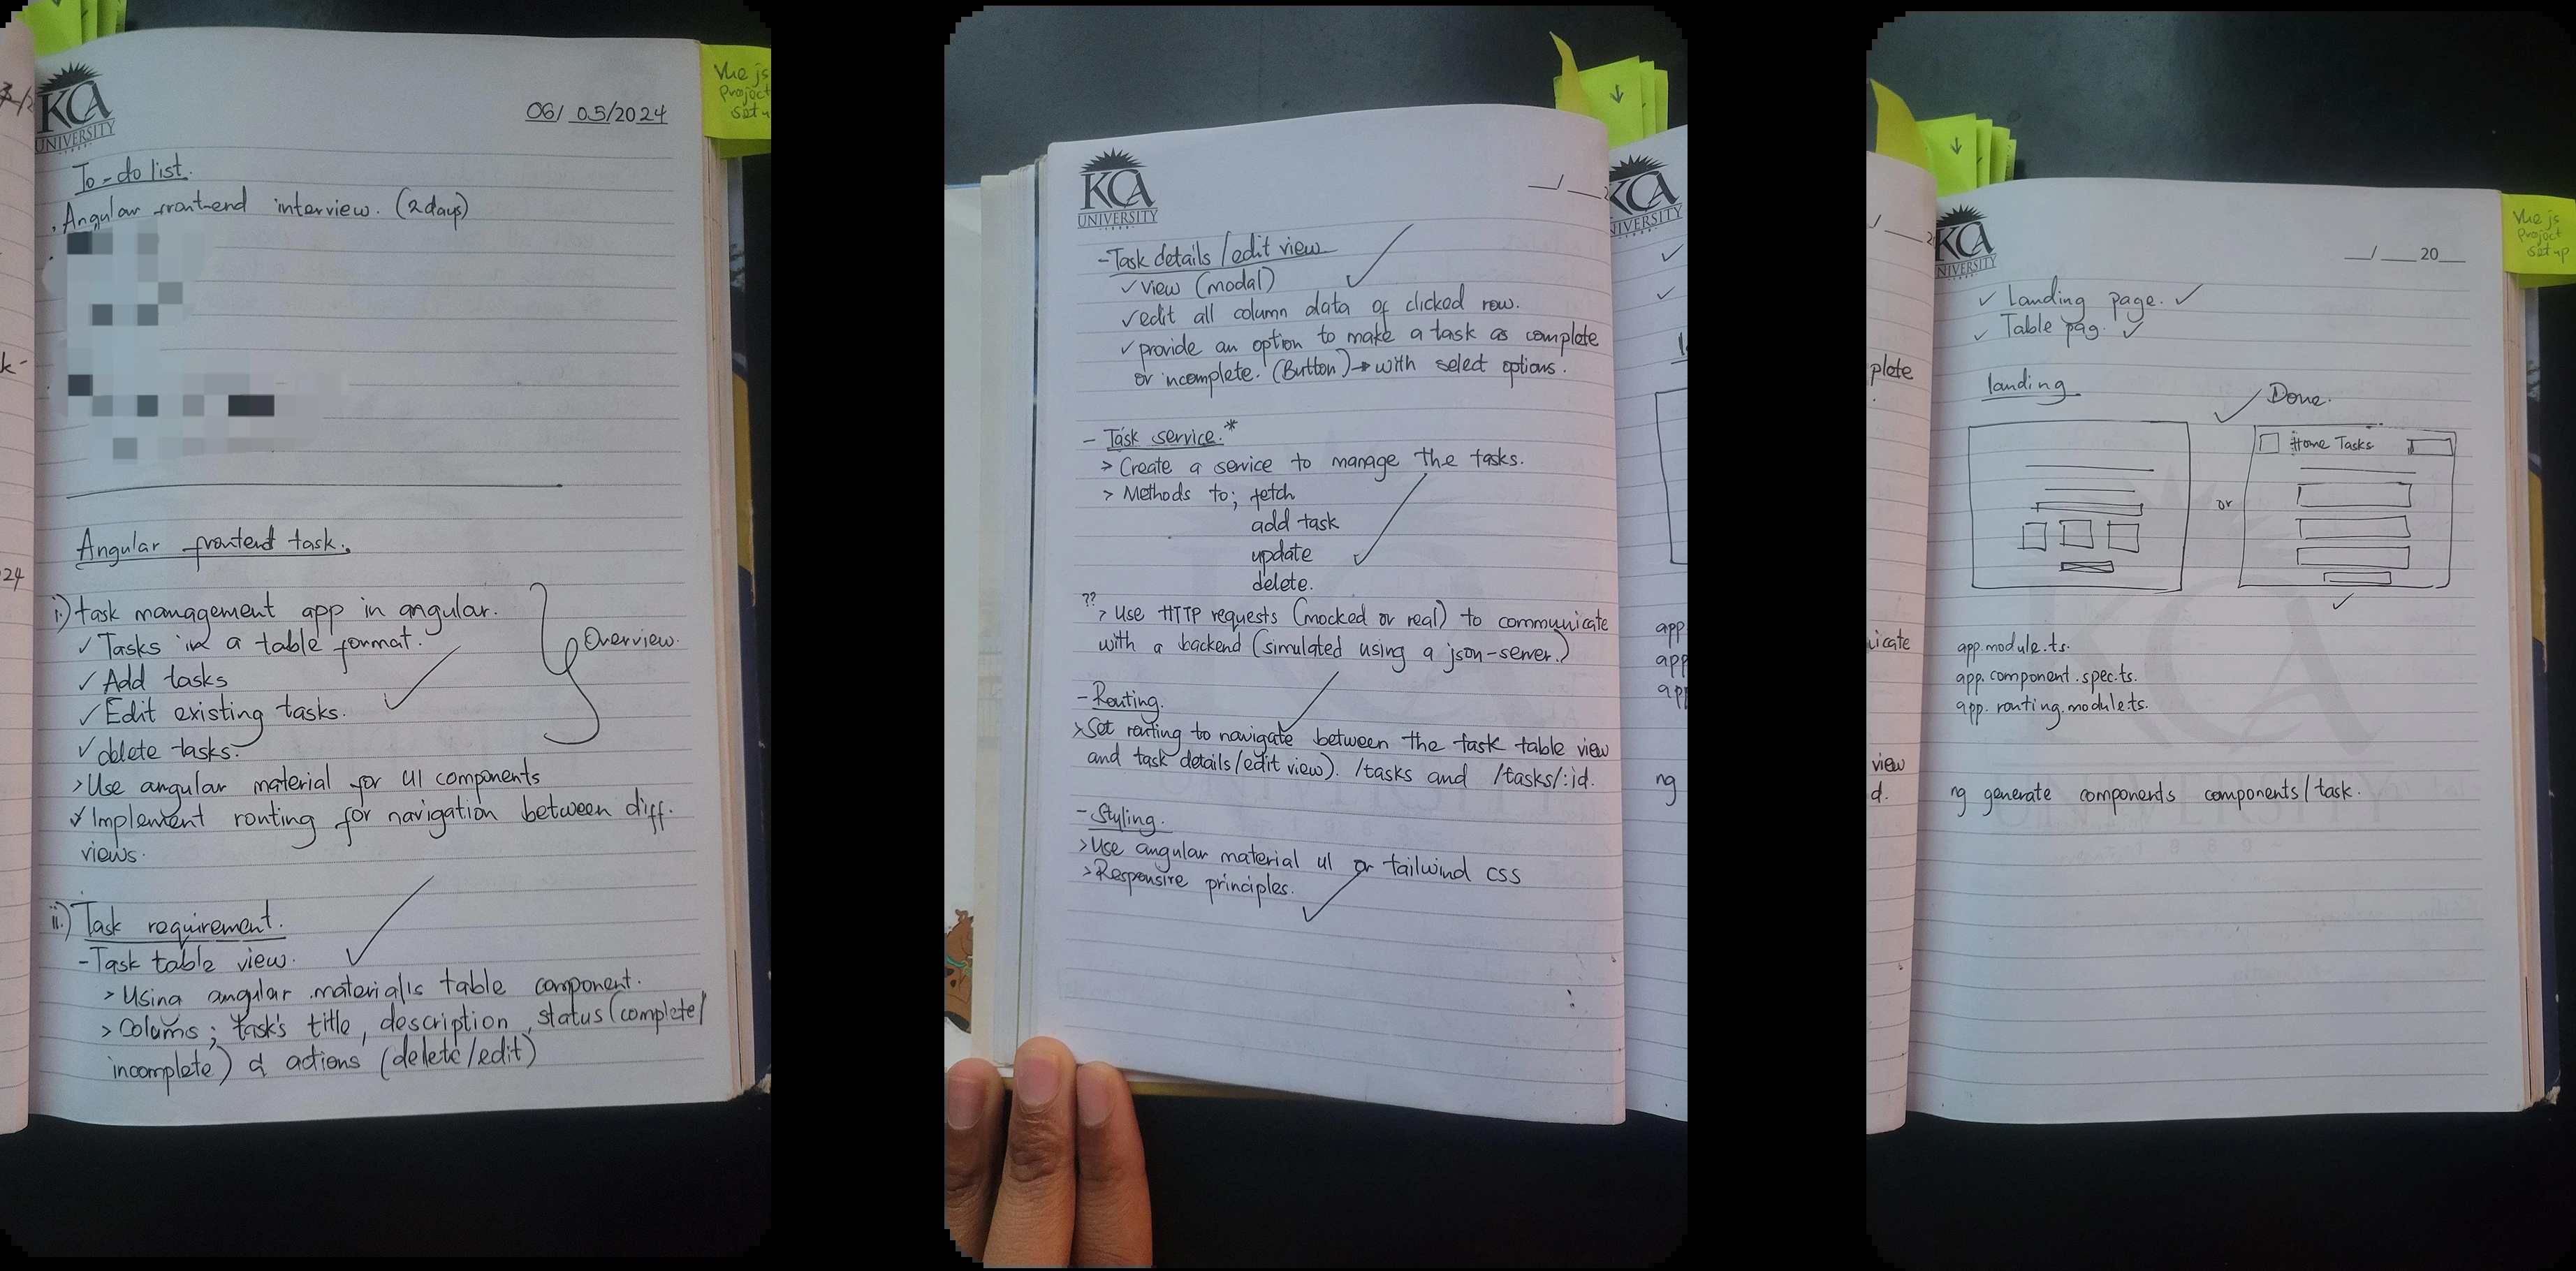 KCA
UNIVERSITY
06/ 05/2024
Vue js
Project
set u
To-do list.
. Angular front-end interview. (2 days)
k-
24
Angular frontend task.
i.) task management app in angular.
✓ Tasks in a table format.
✓ Add tasks
✓ Edit existing tasks.
✓ delete tasks.
Overview.
> Use angular material for UI components
✓ Implement routing for navigation between diff.
views.
ii.) Task requirement.
- Task table view.
> Using angular materials table component.
> Colums; task's title, description, status (complete/
incomplete) & actions (delete/edit)
KCA
UNIVERSITY
KCA
UNIVERSITY
- Task details /edit view
✓ view (modal)
✓ edit all column data of clicked row.
✓ provide an option to make a task as complete
or incomplete. (Button) → with select options.
- Task service.*
> Create a service to manage the tasks.
> Methods to; fetch
add task
update
delete.
?? > Use HTTP requests (mocked or real) to communicate
with a backend (simulated using a json-server.)
- Routing.
> Set routing to navigate between the task table view
and task details/edit view). /tasks and /tasks/:id.
- Styling.
> Use angular material ui or tailwind css
> Responsive principles.
app.
app
app
ng
KCA
UNIVERSITY
__/ ____ 20__
Vue js
Project
set up
✓ Landing page. ✓
✓ Table pag. ✓
plete
landing
✓ Done.
Home Tasks
or
icate
app.module.ts.
app.component.spec.ts.
app.routing.module.ts.
view
d.
ng generate components components/task.